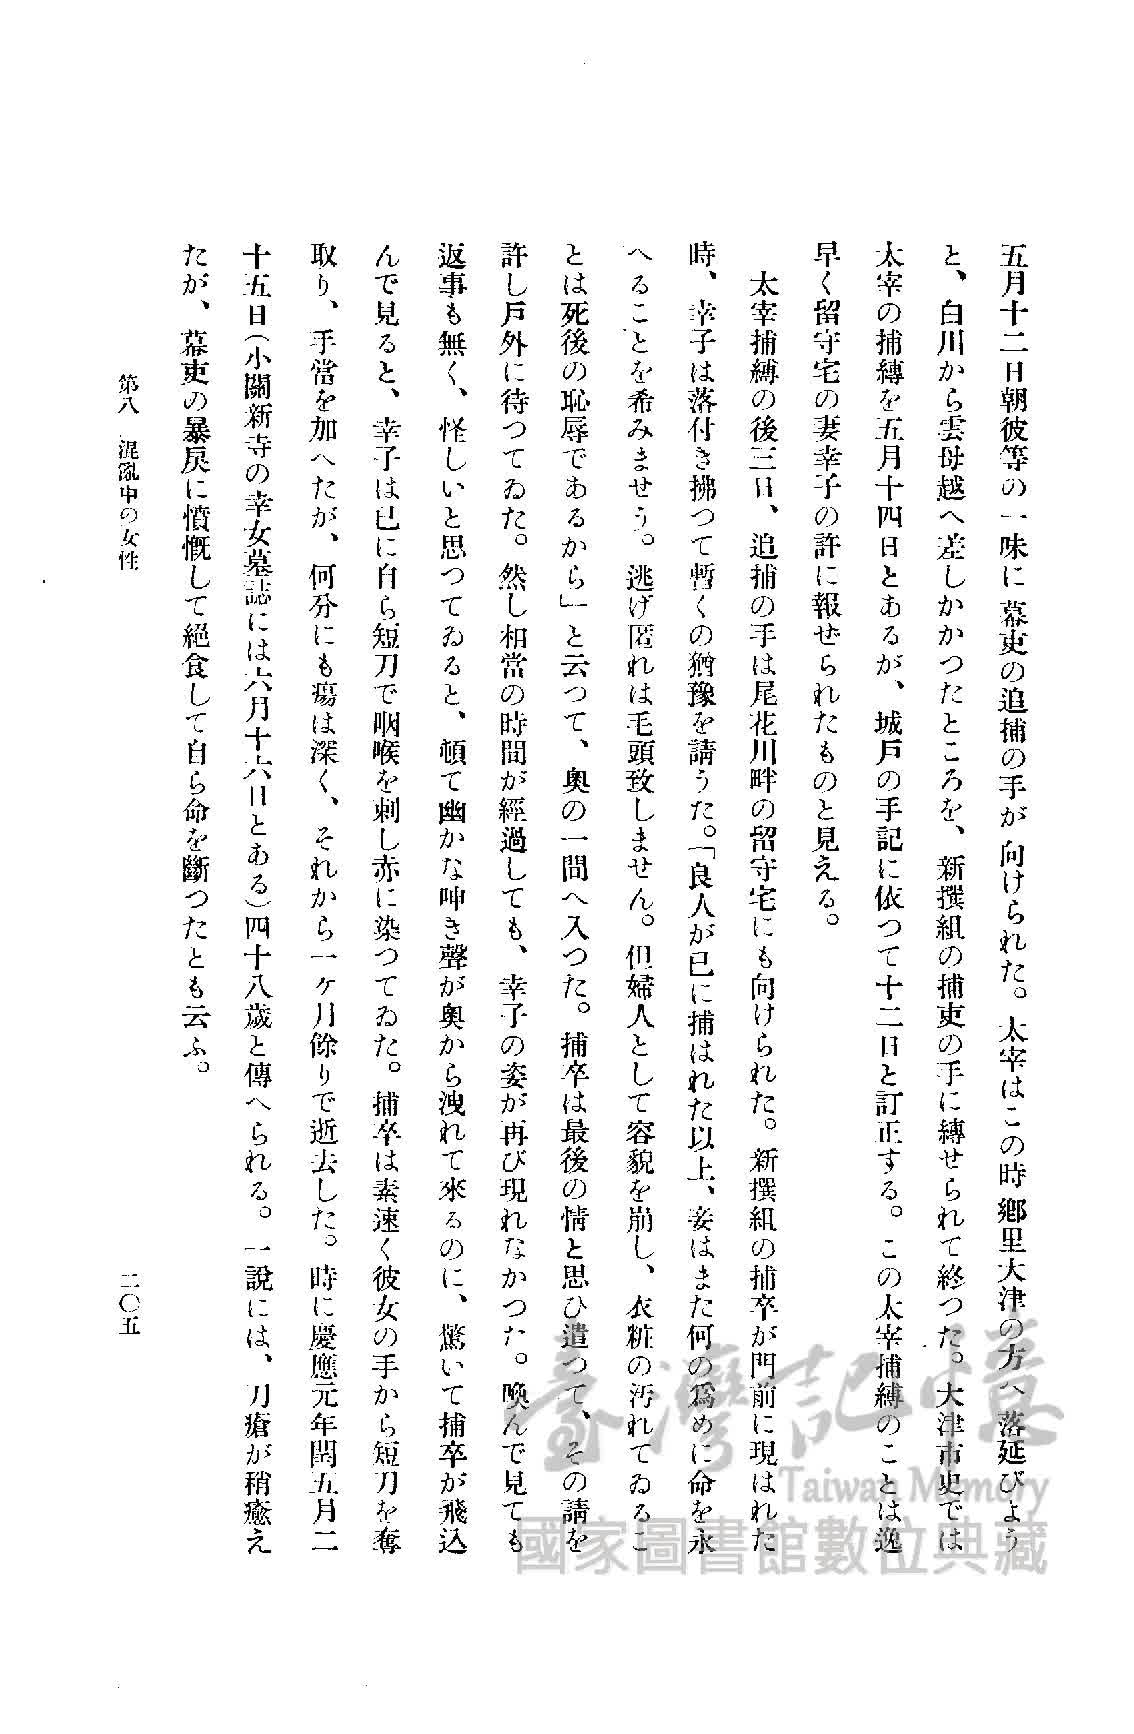 五月十二日朝彼等の一味に幕吏の追捕の手が向けられた。太宰はこの時鄕里大津の方へ落延びよう
と、白川から雲母越へ差しかかつたところを、新撰組の捕吏の手に縛せられて終つた。大津市史では
太宰の捕縛を五月十四日とあるが、城戸の手記に依つて十二日と訂正する。この太宰捕縛のことは逸
早く留守宅の妻幸子の許に報ぜられたものと見える。
太宰捕縛の後三日、追捕の手は尾花川畔の留守宅にも向けられた。新撰組の捕卒が門前に現はれた
時、幸子は落付き拂つて暫くの猶豫を請うた。「良人が已に捕はれた以上、妾はまた何の爲めに命を永
へることを希みませう。逃げ匿れは毛頭致しません。但婦人として容貌を崩し、衣粧の汚れてゐるこ
とは死後の恥辱であるから」と云つて、奧の一間へ入つた。捕卒は最後の情と思ひ遣つて、その請を
許し戸外に待つてゐた。然し相當の時間が經過しても、幸子の姿が再び現れなかつた。喚んで見ても
返事も無く、怪しいと思つてゐると、頓て幽かな呻き聲が奧から洩れて來るのに、驚いて捕卒が飛込
んで見ると、幸子は已に自ら短刀で咽喉を刺し赤に染つてゐた。捕卒は素速く彼女の手から短刀を奪
取り、手當を加へたが、何分にも瘍は深く、それから一ヶ月餘りで逝去した。時に慶應元年閏五月二
十五日(小關新寺の幸女墓誌には六月十六日とある)四十八歲と傳へられる。一說には、刀瘡が稍癒え
たが、幕吏の暴戾に憤慨して絕食して自ら命を斷つたとも云ふ。
第八 混亂中の女性
二〇五
臺灣記憶
Taiwan Memory
國家圖書館數位典藏